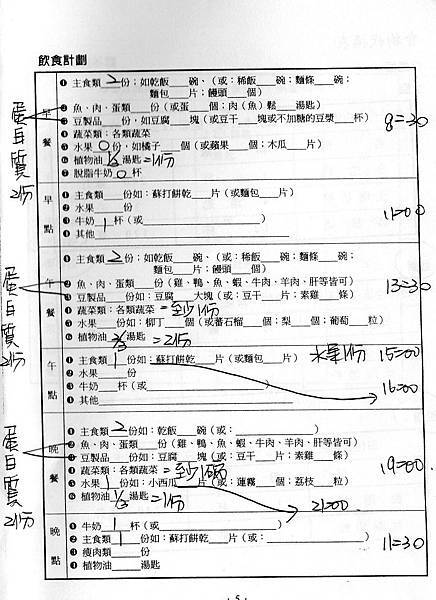 飲食計劃
早餐
❶ 主食類 2 份;如乾飯___碗、(或:稀飯___碗;麵條___碗;
麵包___片;饅頭___個)
❷ 魚、肉、蛋類___份(或蛋___個;肉(魚)鬆___湯匙)
❸ 豆製品___份,如豆腐___塊(或豆干___塊或不加糖的豆漿___杯)
❹ 蔬菜類:各類蔬菜
❺ 水果 0 份,如橘子___個(或蘋果___個;木瓜___片)
❻ 植物油 1/3 湯匙=1份
❼ 脫脂牛奶 0 杯
蛋白質2份
8=30
早點
❶ 主食類___份如:蘇打餅乾___片(或麵包___片)
❷ 水果___份
❸ 牛奶 1 杯(或___)
❹ 其他___
11=00
午餐
❶ 主食類 2 份;如乾飯___碗、(或:稀飯___碗;麵條___碗;
麵包___片;饅頭___個)
❷ 魚、肉、蛋類___份(雞、鴨、魚、蝦、牛肉、羊肉、肝等皆可)
❸ 豆製品___份如:豆腐___大塊(或:豆干___片;素雞___條)
❹ 蔬菜類:各類蔬菜=至少1份
❺ 水果___份如:柳丁___個(或蕃石榴___個;梨___個;葡萄___粒)
❻ 植物油 2/3 湯匙=2份
蛋白質2份
13=30
午點
❶ 主食類 1 份如:蘇打餅乾___片(或麵包___片) 水果1份 15=00
❷ 水果___份
❸ 牛奶___杯(或___)
❹ 其他___
16=00
晚餐
❶ 主食類 2 份如:乾飯___碗(或:___)
❷ 魚、肉、蛋類___份(雞、鴨、魚、蝦、牛肉、羊肉、肝等皆可)
❸ 豆製品___份如:豆腐___塊(或:豆干___片;素雞___條)
❹ 蔬菜類:各類蔬菜=至少1碗
❺ 水果 1 份如:小西瓜___片(或:蓮霧___個;荔枝___粒)
❻ 植物油 1/3 湯匙=1份
蛋白質2份
19=00
21=00
晚點
❶ 牛奶 1 杯(或___)
❷ 主食類 1 份如:蘇打餅乾___片(或:___)
❸ 瘦肉類___份
❹ 植物油___湯匙
11=30
. 5 .